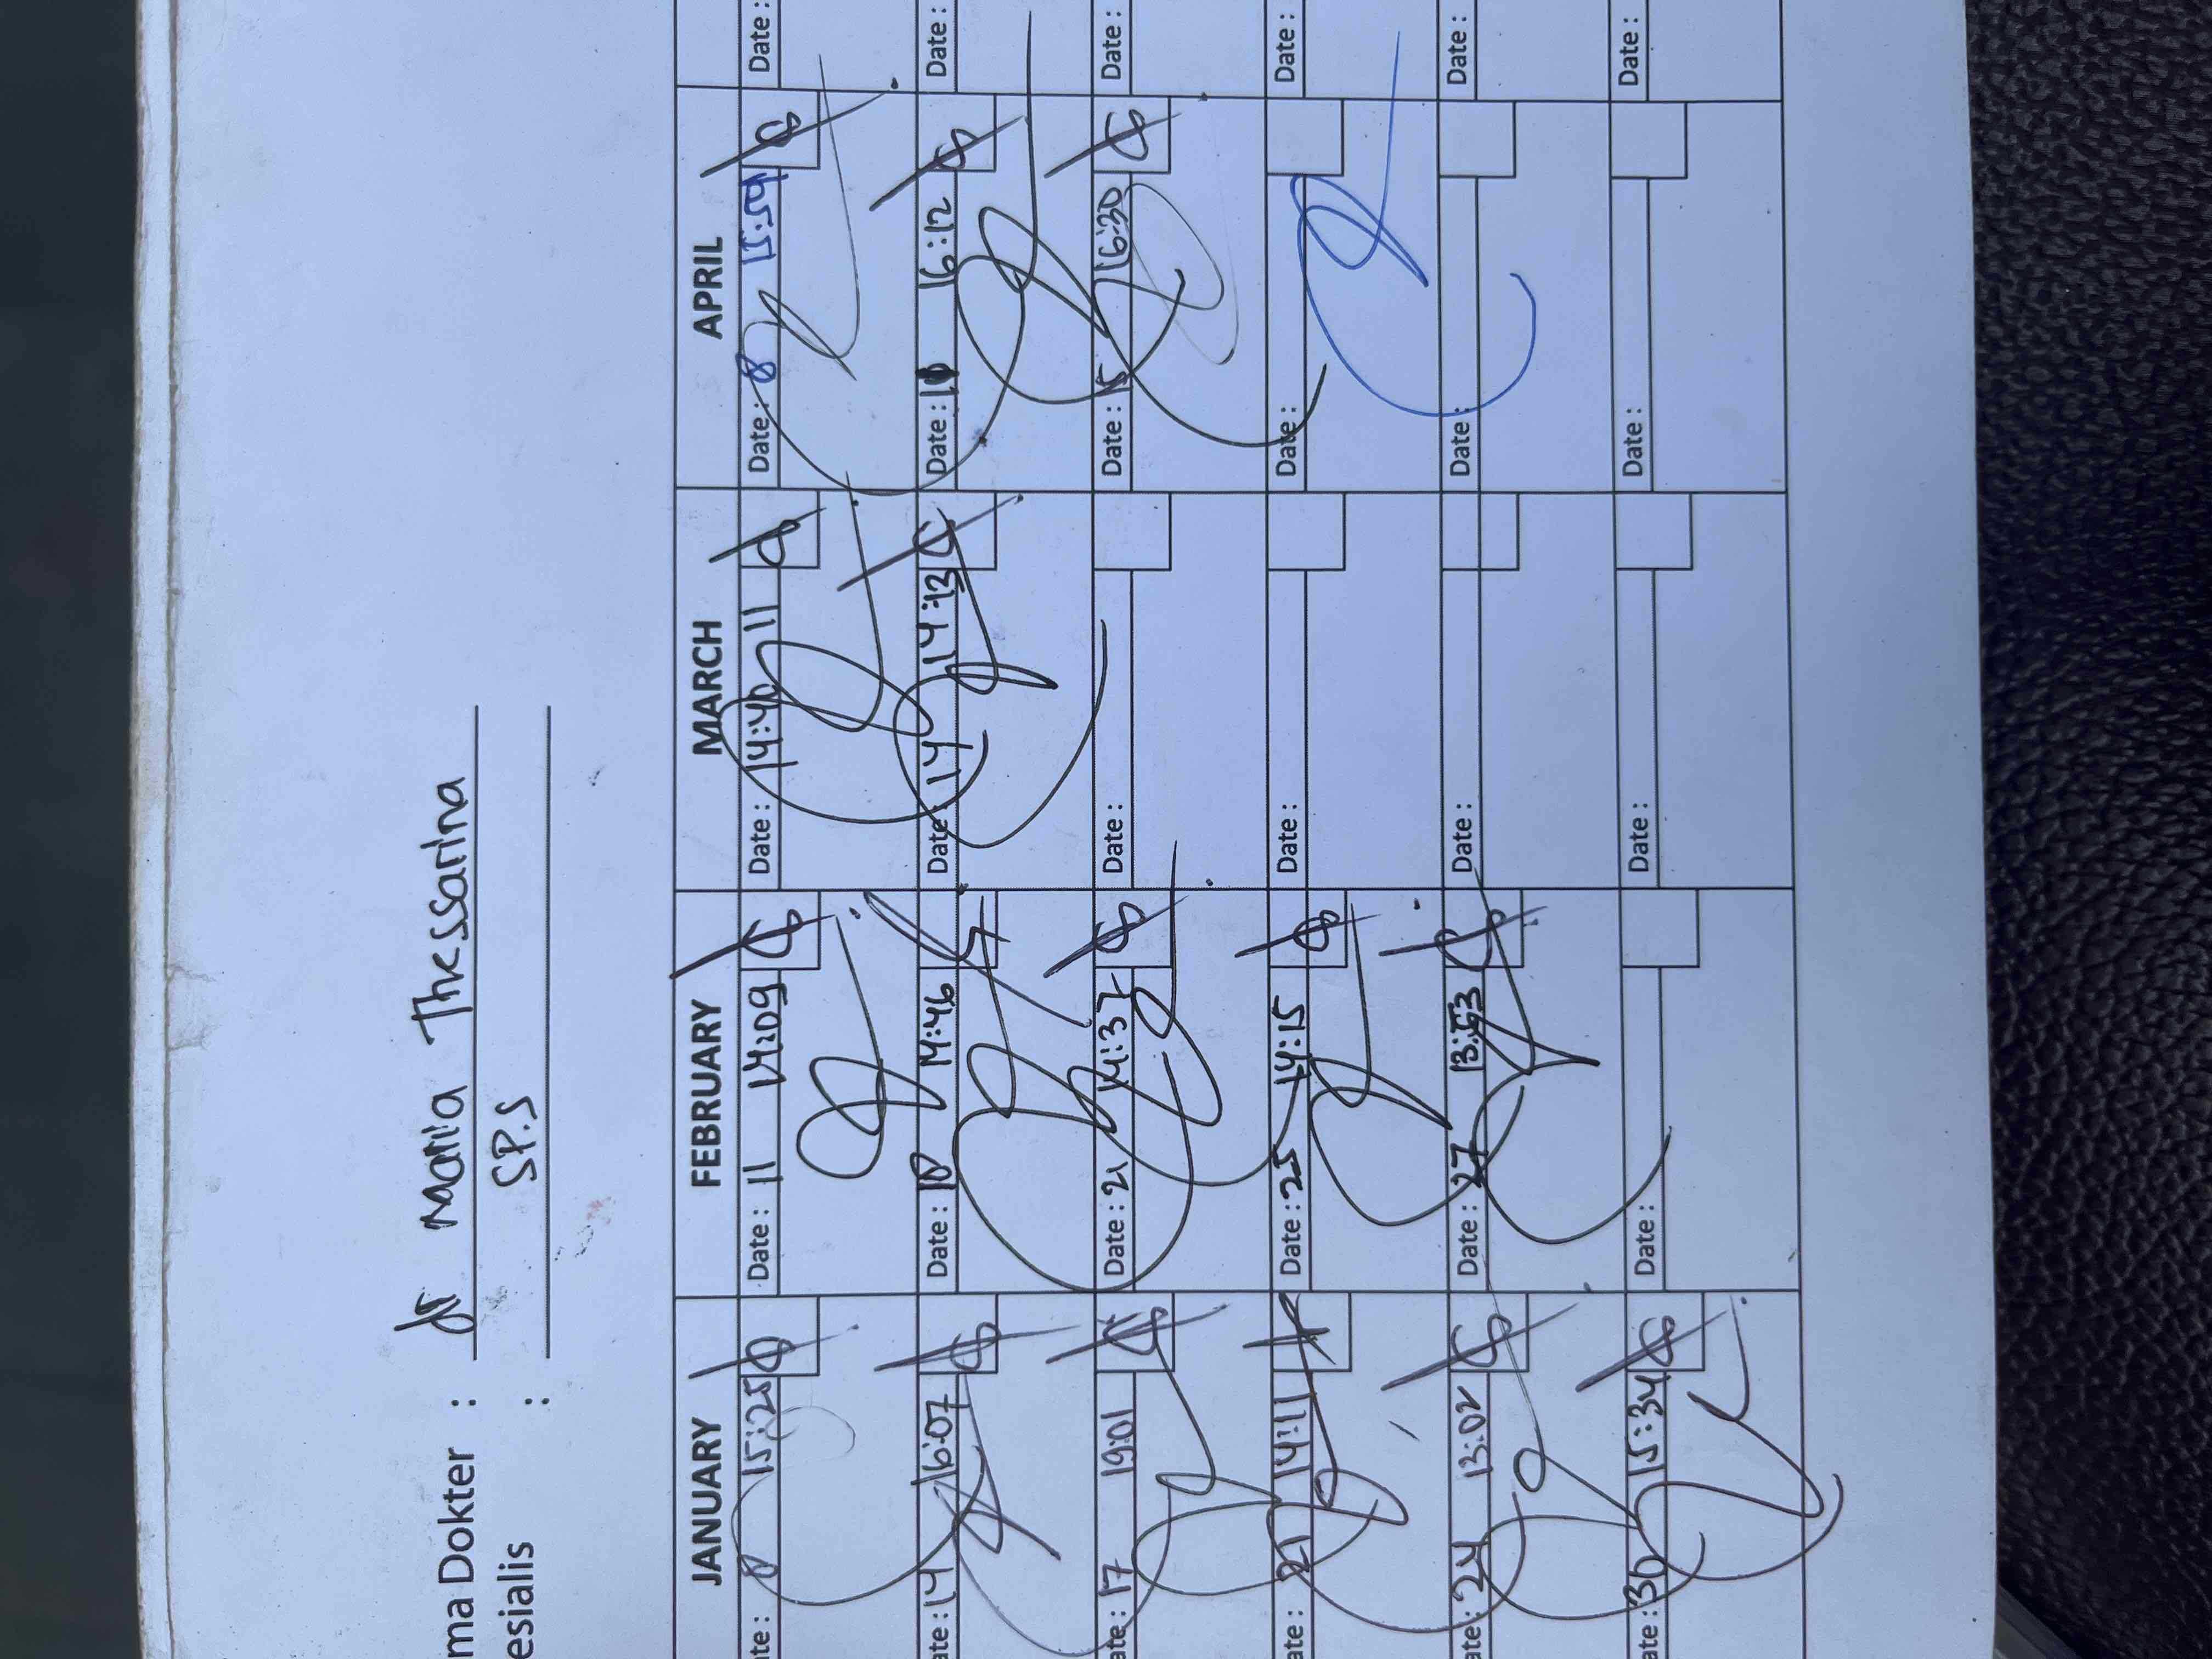 ma Dokter : dr Maria Thessarina
esialis : SP.S
JANUARY FEBRUARY MARCH APRIL
ate : 8 15:25 Date : 11 14:09 Date : 14:40 11 Date : 8 15:59 Date :
ate : 14 16:07 Date : 18 14:46 Date : 14 14:43 Date : 16:12 Date :
ate : 17 19:01 Date : 21 14:37 Date : Date : 15 16:30 Date :
ate : 21 14:11 Date : 25 14:15 Date : Date : Date :
ate : 24 13:02 Date : 27 13:53 Date : Date : Date :
ate : 30 15:34 Date : Date : Date : Date :